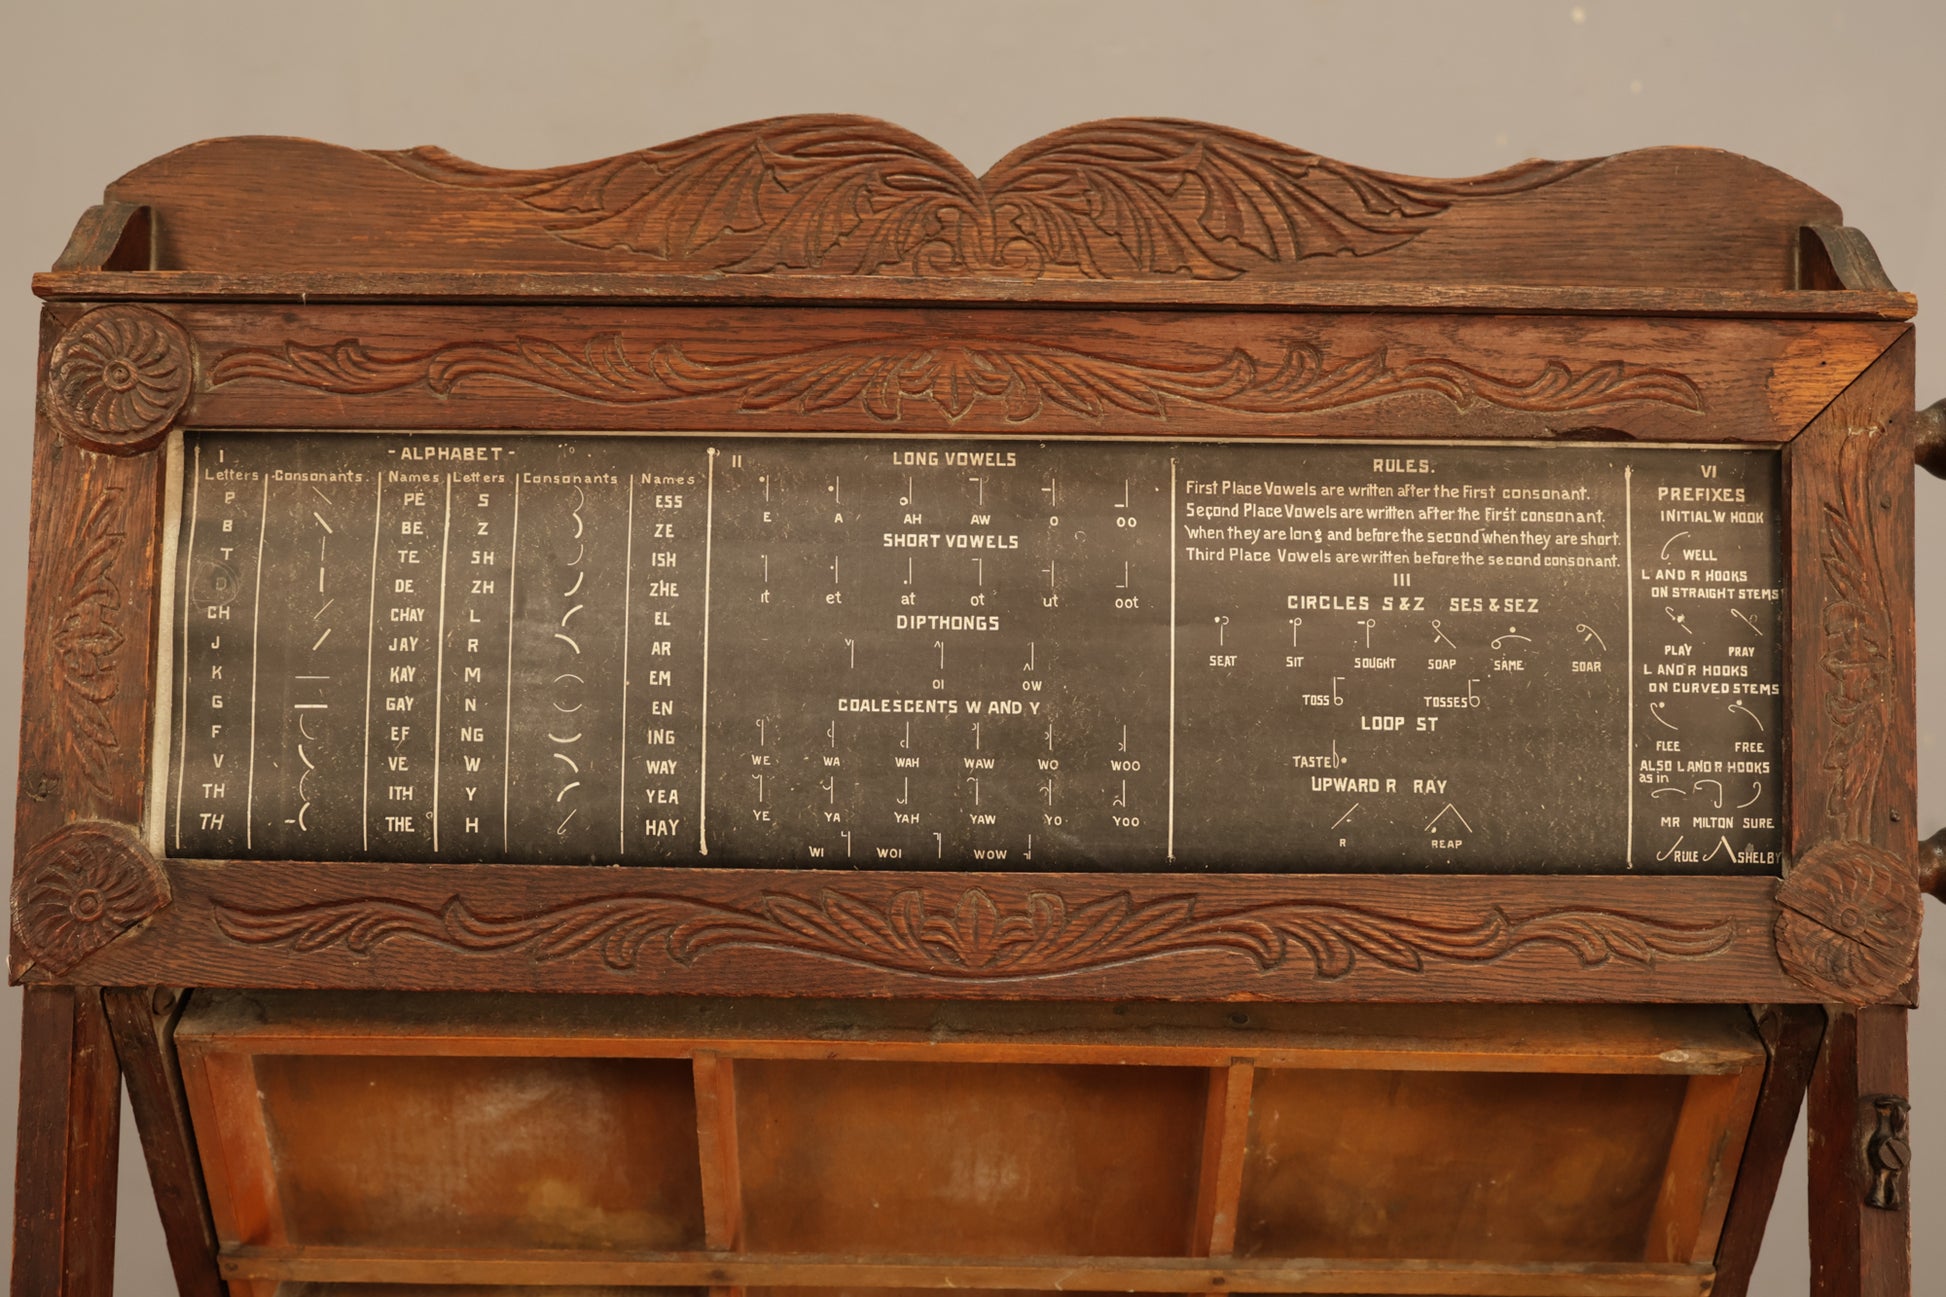 I -ALPHABET-
Letters Consonants. Names Letters Consonants Names
P PE S ESS
B BE Z ZE
T TE SH ISH
D DE ZH ZHE
CH CHAY L EL
J JAY R AR
K KAY M EM
G GAY N EN
F EF NG ING
V VE W WAY
TH ITH Y YEA
TH THE H HAY
II LONG VOWELS
E A AH AW O OO
SHORT VOWELS
it et at ot ut oot
DIPTHONGS
OI OW
COALESCENTS W AND Y
WE WA WAH WAW WO WOO
YE YA YAH YAW YO YOO
WI WOI WOW
RULES.
First Place Vowels are written after the First consonant.
Second Place Vowels are written after the First consonant.
when they are long and before the second when they are short.
Third Place Vowels are written before the second consonant.
III
CIRCLES S & Z SES & SEZ
SEAT SIT SOUGHT SOAP SAME SOAR
TOSS TOSSES
LOOP ST
TASTE
UPWARD R RAY
R REAP
VI
PREFIXES
INITIAL W HOOK
WELL
L AND R HOOKS
ON STRAIGHT STEMS
PLAY PRAY
L AND R HOOKS
ON CURVED STEMS
FLEE FREE
ALSO L AND R HOOKS
as in
MR MILTON SURE
RULE SHELBY